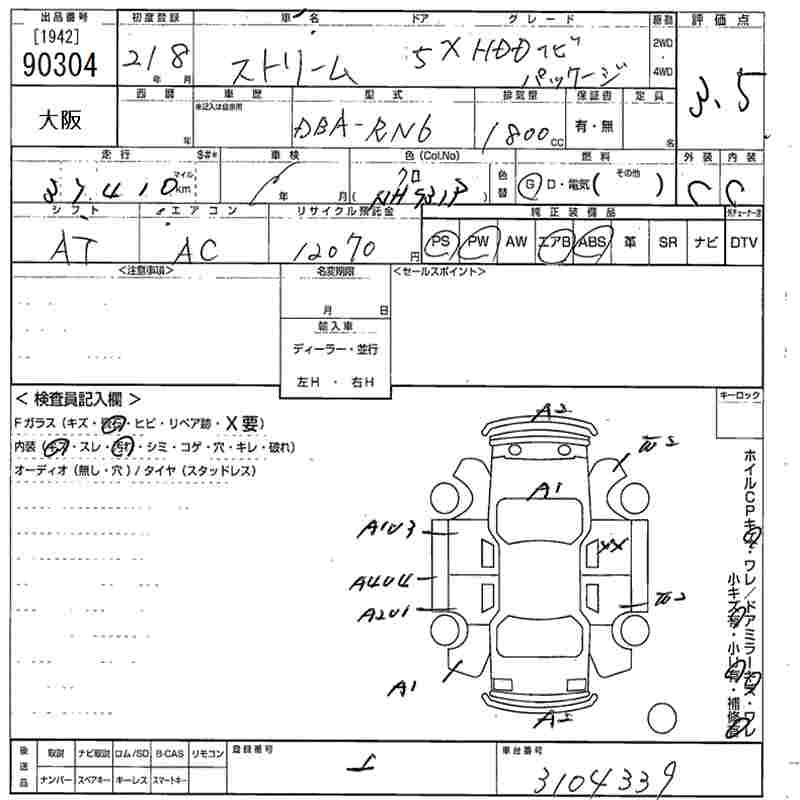 出品番号 初度登録 車名 ドア グレード 駆動 評価点
[1942]
90304
21 8 年 月
ストリーム 5 X HDDナビ
パッケージ
2WD
・
4WD
3.5
大阪
西暦 車歴 型式 排気量 保証書 定員
※記入は自家用
年 DBA-RN6 1800 CC 有・無 名
走行 S#* 車検 色(Col.No) 色替 燃料 外装 内装
37,410 マイル km
年 月
クロ
( NH731P )
G D・電気( その他 )
C C
シフト エアコン リサイクル預託金 純正装備品
AT AC 12070 円 PS PW AW エアB ABS 革 SR ナビ DTV
<注意事項> 名変期限 <セールスポイント>
月 日
輸入車
ディーラー・並行
左H ・ 右H
< 検査員記入欄 > キーロック
Fガラス(キズ・飛石・ヒビ・リペア跡・X要)
内装(キズ・スレ・汚れ・シミ・コゲ・穴・キレ・破れ)
オーディオ(無し・穴)/タイヤ(スタッドレス)
A2
A1
A1U3
XX
A4U4
A2U1
A1
A2
ホイルCPキズ・ワレ/ドアミラーキズ・ワレ
小キズ有・小凹有・補修有
後送品 取説 ナビ取説 ロム/SD B-CAS リモコン 登録番号 車台番号
ナンバー スペアキー キーレス スマートキー
3104339